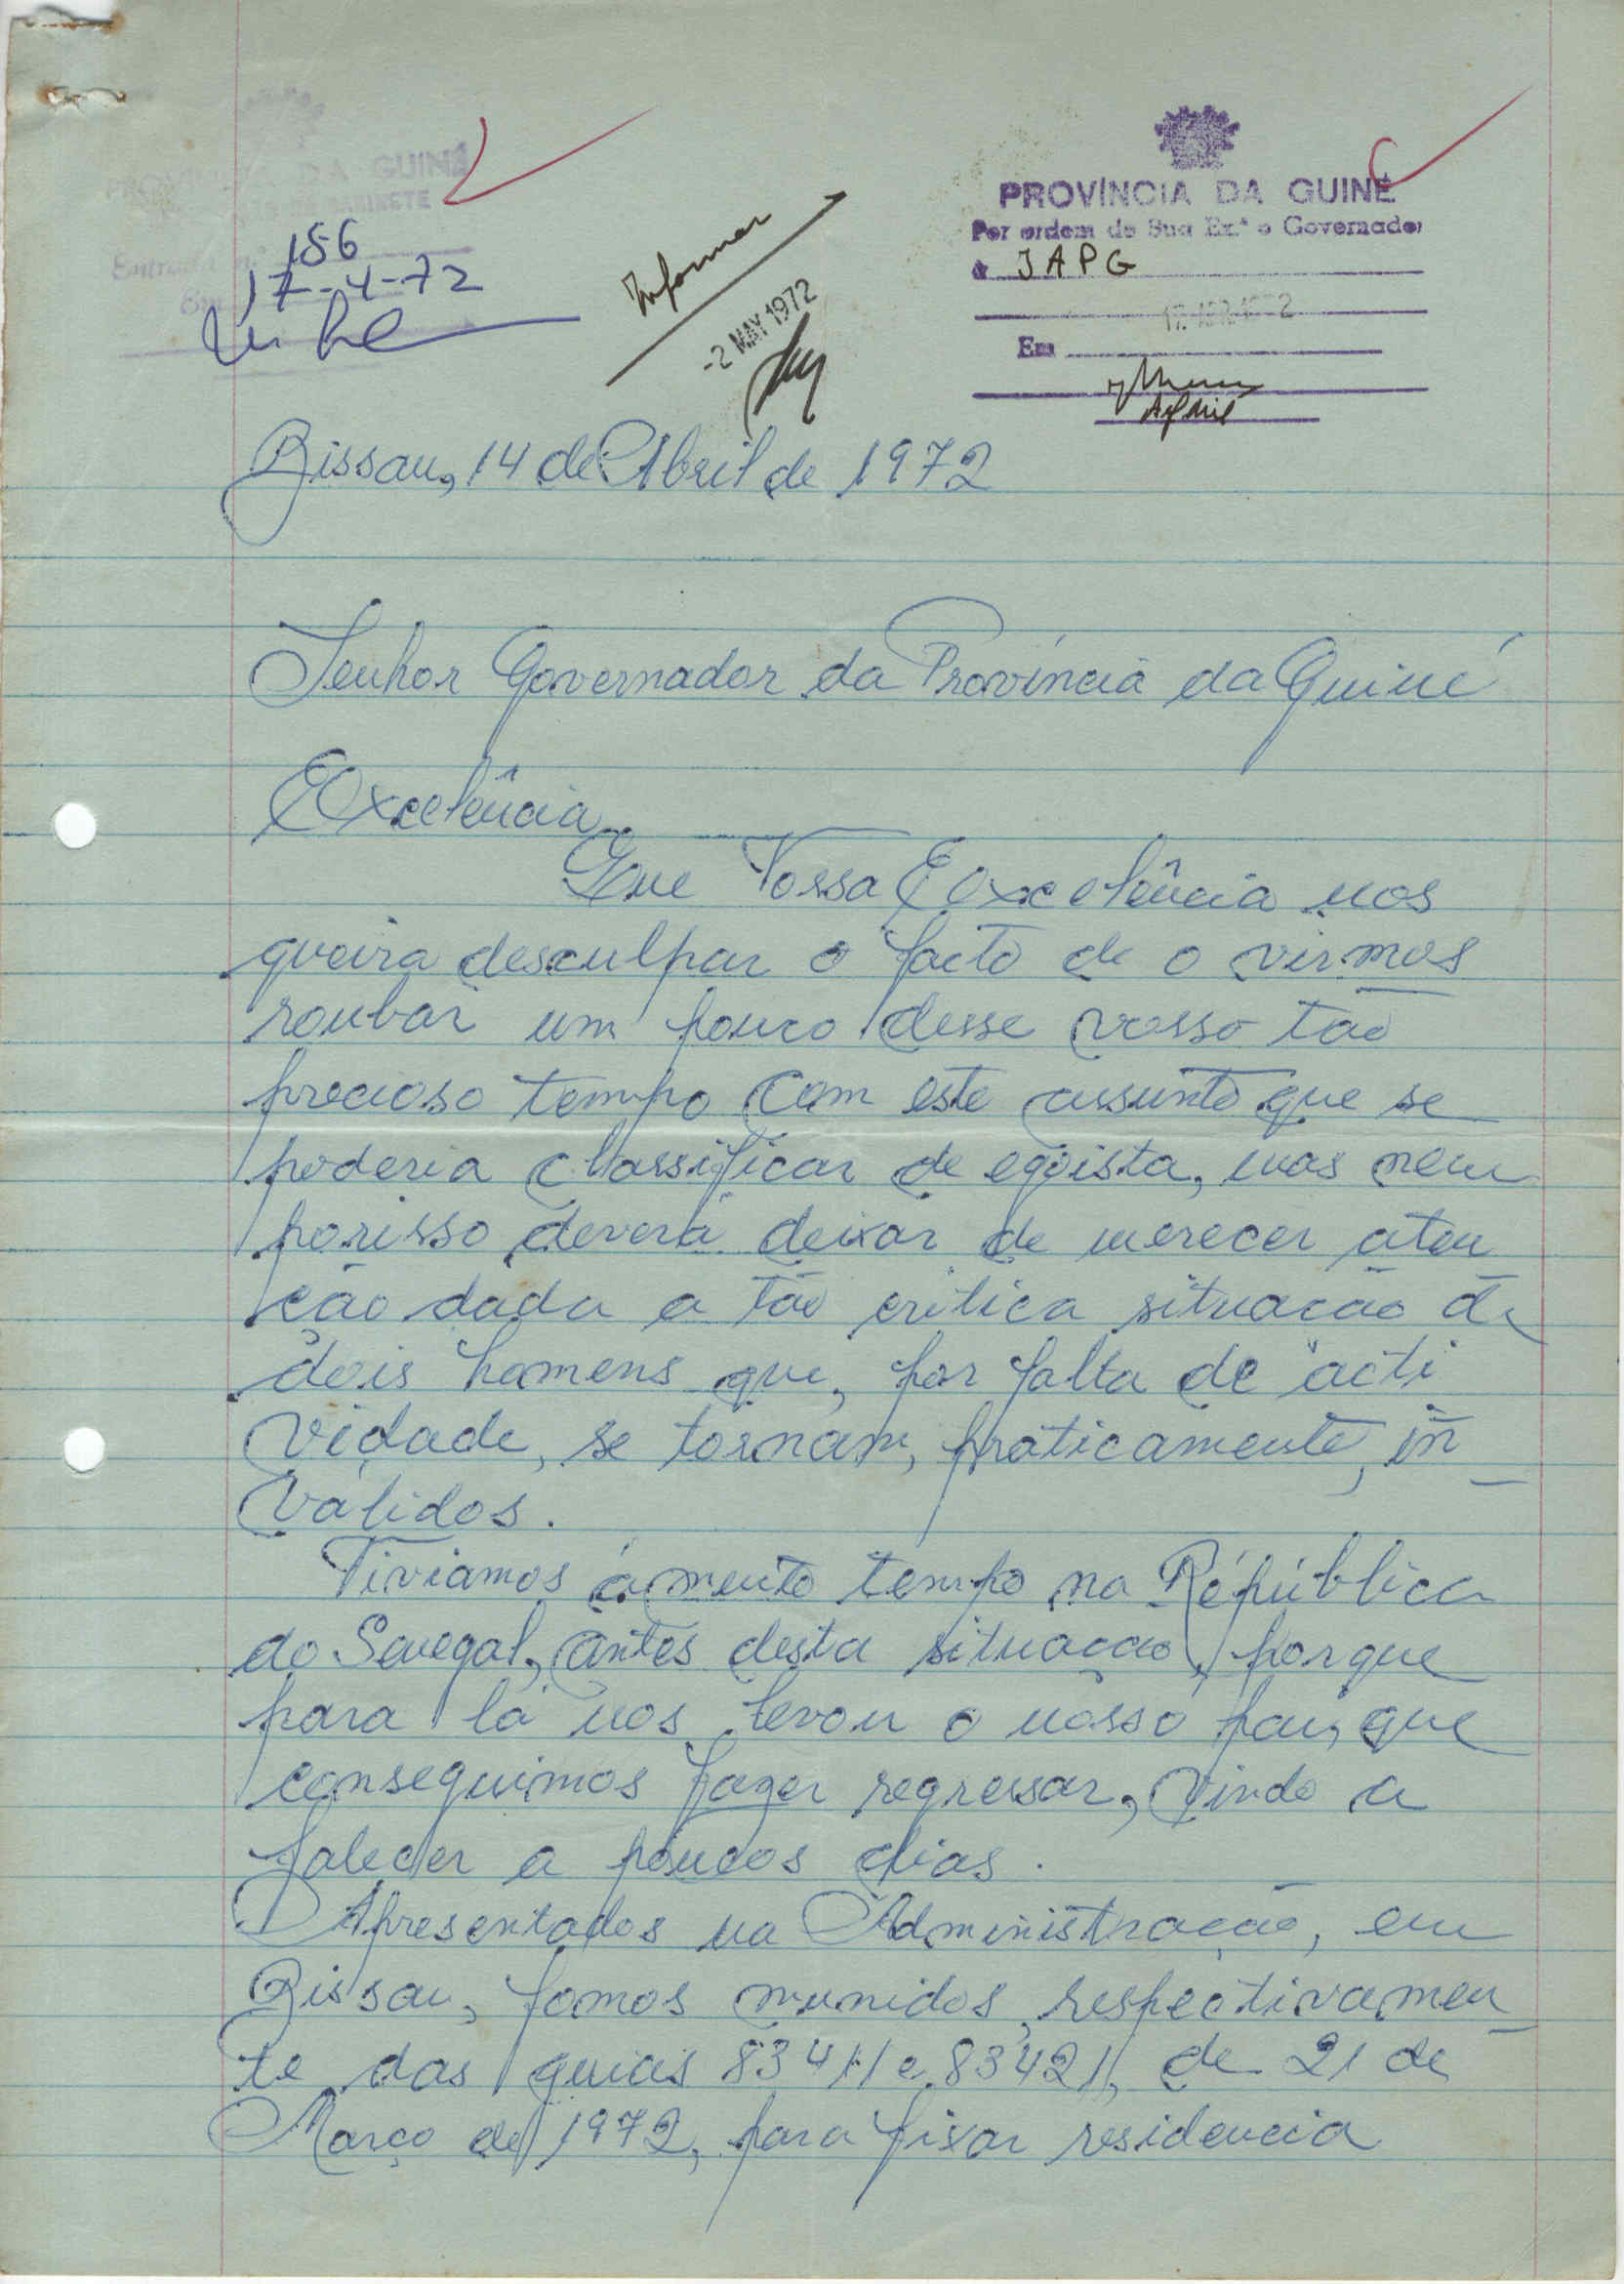 PROVÍNCIA DA GUINÉ
GABINETE
Entrada nº 156
Em 17-4-72
Informar
-2 MAY 1972
PROVÍNCIA DA GUINÉ
Por ordem de Sua Ex.ª o Governador
à JAPG
17. ABR. 1972
Em
Bissau, 14 de Abril de 1972
Senhor Governador da Província da Guiné
Excelência
Que Vossa Excelência nos
queira desculpar o facto de o virmos
roubar um pouco desse vosso tão
precioso tempo com este assunto que se
poderia classificar de egoista, mas nem
porisso deverá deixar de merecer aten
ção dada a tão critica situação de
dois homens que, por falta de acti
vidade, se tornam, práticamente, in
válidos.
Viviamos á muito tempo na República
do Senegal, antes desta situação, porque
para lá nos levou o nosso pai, que
conseguimos fazer regressar, vindo a
falecer a poucos dias.
Apresentados na Administração, em
Bissau, fomos munidos, respectivamen
te das guias 8341/ e 8342/, de 21 de
Março de 1972, para fixar residencia